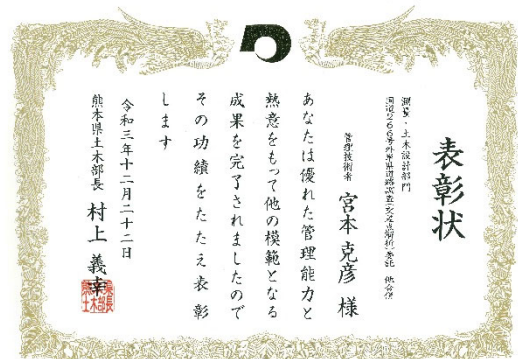 表彰状
測量・土木設計部門
国道266号外単県道路調査（安定点解析）委託 他合併
管理技術者 宮本 克彦 様
あなたは優れた管理能力と
熱意をもって他の模範となる
成果を完了されましたので
その功績をたたえ表彰
します
令和三年十二月二十二日
熊本県土木部長 村上 義幸